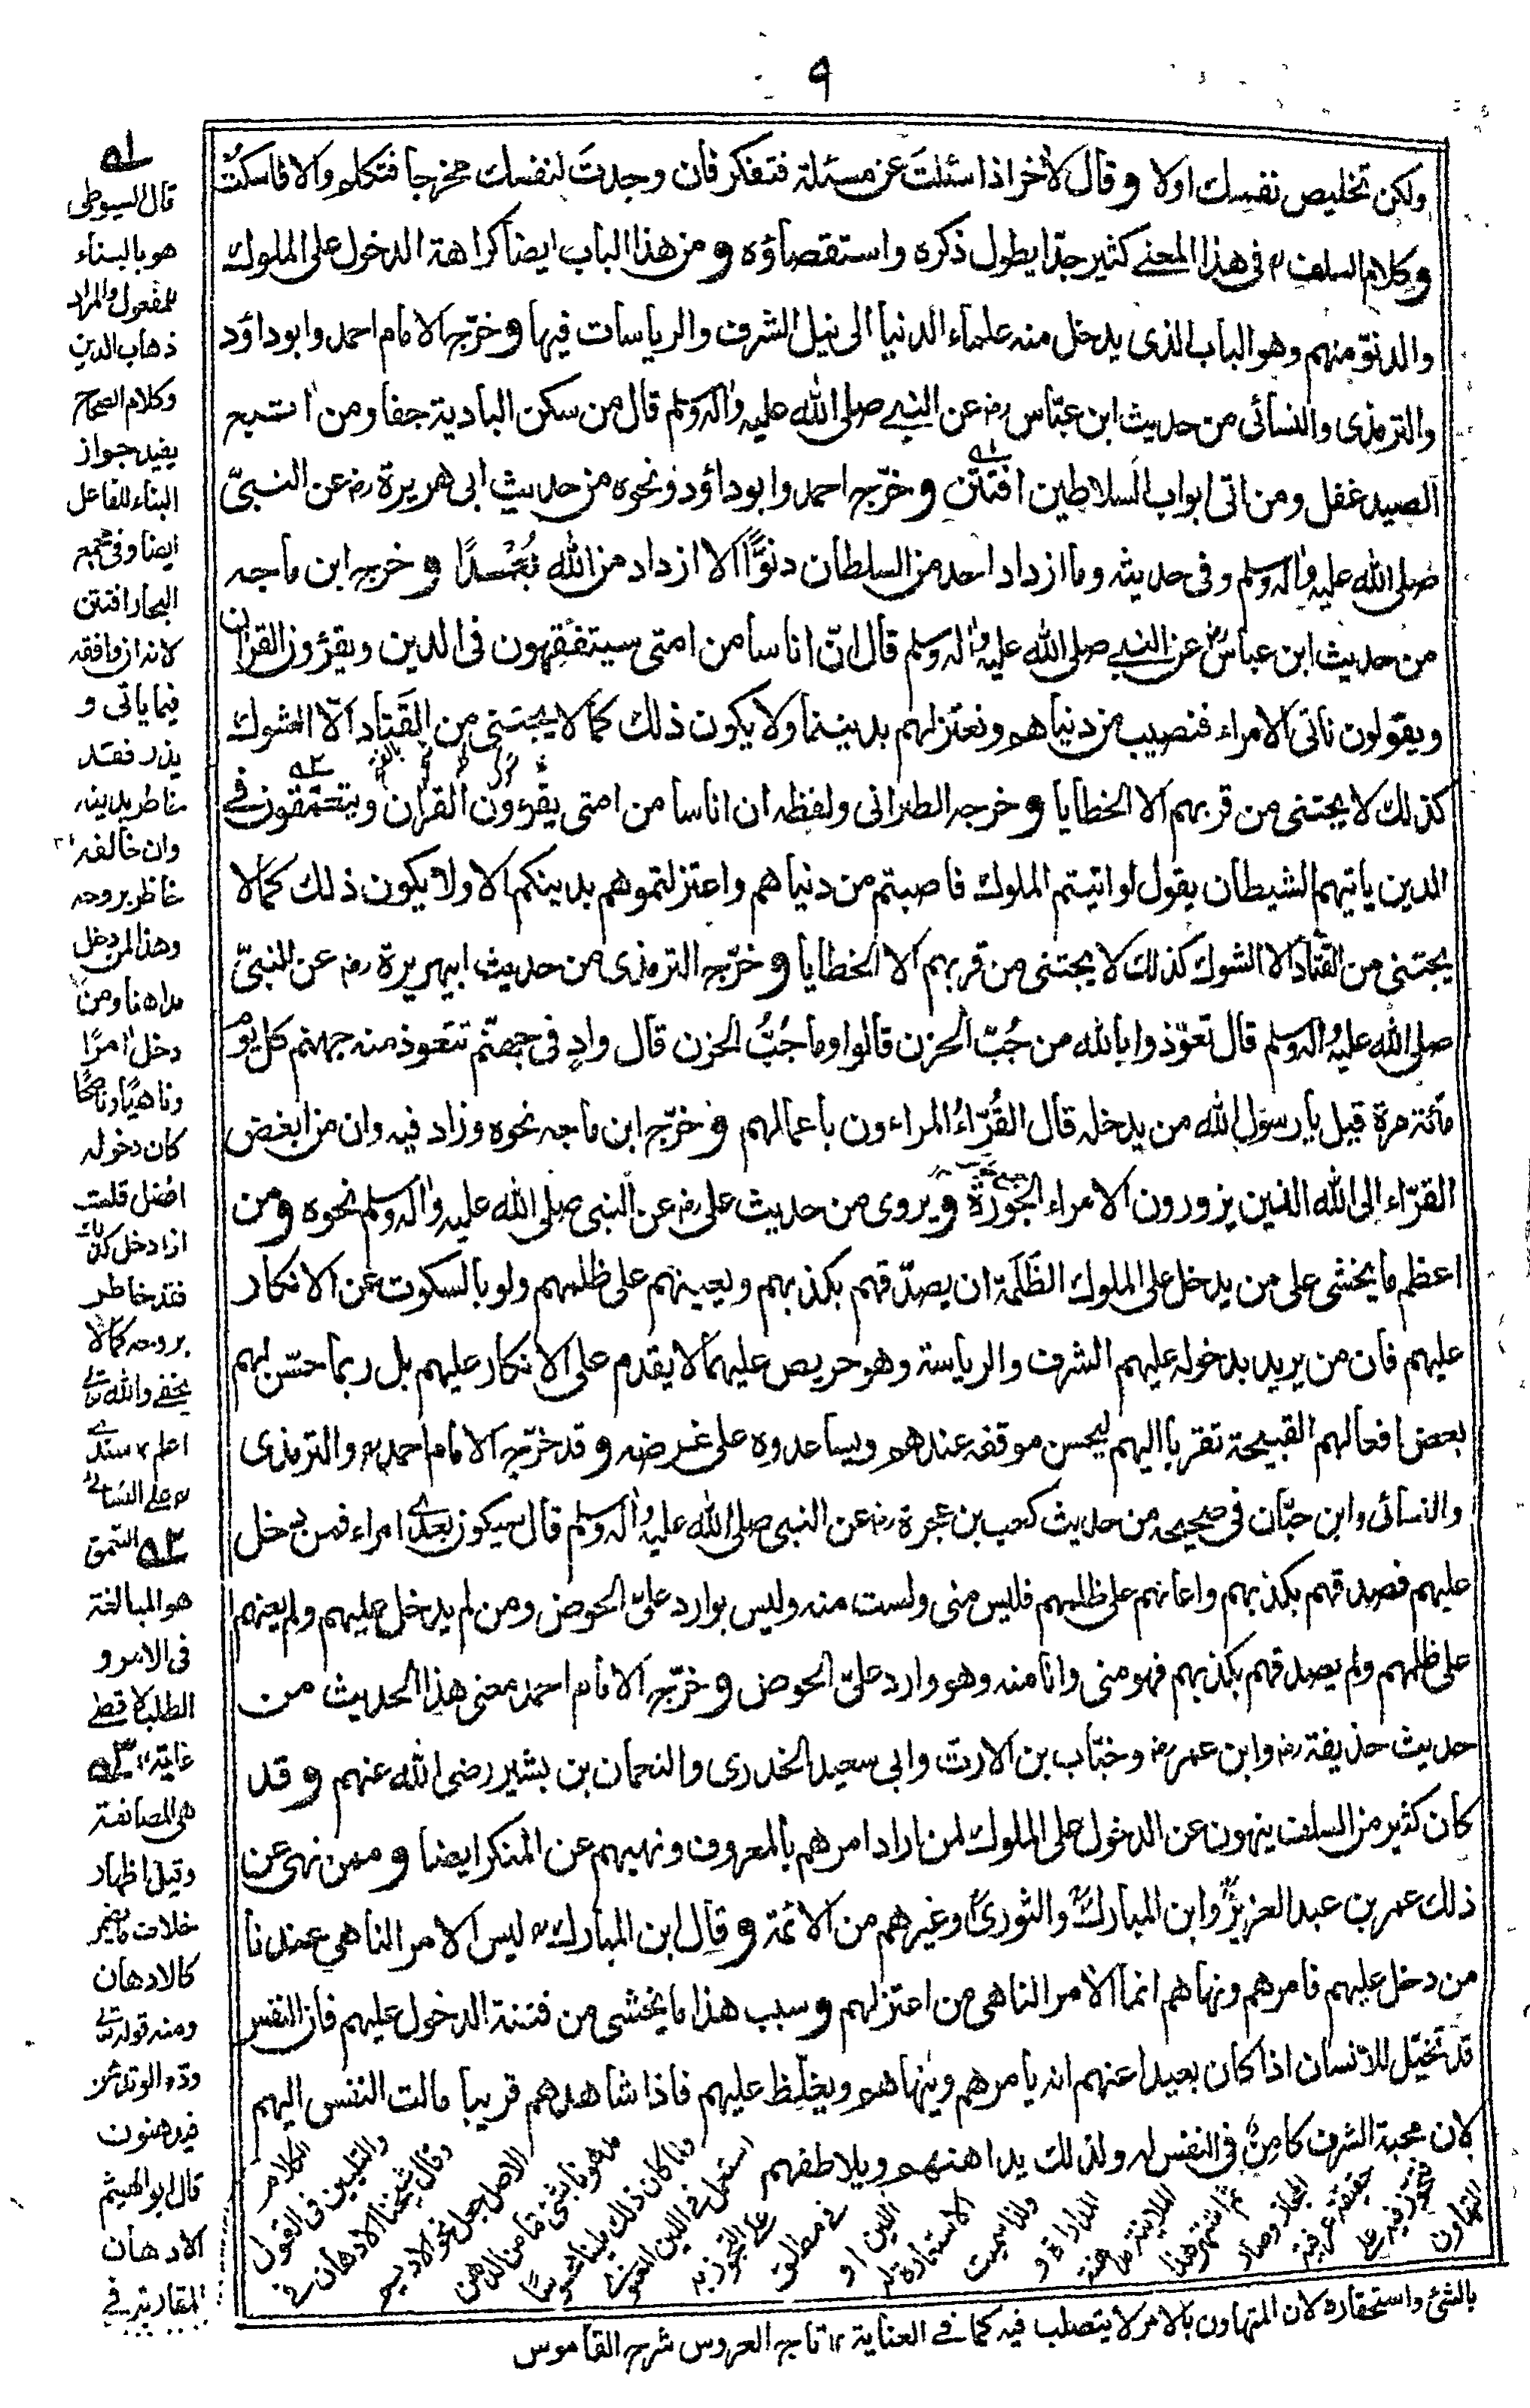 ٩
ولكن تخليص نفسك اولا وقال لآخر اذا سئلت عن مسئلة فتفكر فان وجدتَ لنفسك مخرجا فتكلم والا فاسكت
وكلام السلف في هذا المعنے كثير جدّا يطول ذكره واستقصاؤه ومن هذا الباب ايضا كراهة الدخول على الملوك
والدنوّ منهم وهو الباب الذى يدخل منه علماء الدنيا الى نيل الشرف والرياسات فيها وخرّجه الامام احمد وابو داؤد
والترمذى والنسائى من حديث ابن عبّاس رض عن النبے صلى الله عليه واٰله وسلم قال من سكن البادية جفا ومن اتبع
الصيد غفل ومن اتى ابواب السلاطين افتتن وخرّجه احمد وابو داؤد ونحوه من حديث ابى هريرة رض عن النبىّ
صلى الله عليه واٰله وسلم وفى حديثه وما ازداد احد من السلطان دنوًّا الا ازداد من الله بُعْدًا وخرجه ابن ماجه
من حديث ابن عباس رض عن النبے صلى الله عليه واٰله وسلم قال انّ اناسا من امتى سيتفقهون فى الدين ويقرؤن القران
ويقولون ناتى الامراء فنصيب من دنياهم ونعتزلهم بديننا ولا يكون ذلك كما لا يجتنى من القَتاد الّا الشوك
كذلك لا يجتنى من قربهم الا الخطايا وخرجه الطبرانى ولفظه ان اناسا من امتى يقرؤون القرٰن ويتعمقون فے
الدين ياتيهم الشيطان يقول لو اتيتم الملوك فاصبتم من دنياهم واعتزلتموهم بدينكم الا ولا يكون ذلك كما لا
يجتنى من القتاد الا الشوك كذلك لا يجتنى من قربهم الا الخطايا وخرّجه الترمذى من حديث ابيهريرة رض عن النبىّ
صلى الله عليه واٰله وسلم قال تعوّذوا بالله من جُبّ الحزن قالوا وما جُبُّ الحزن قال وادٍ فى جهنّم تتعوذ منه جهنم كل يوم
مائة مرة قيل يا رسول الله من يدخله قال القُرّاءُ المراءون باعمالهم وخرّجه ابن ماجه نحوه وزاد فيه وان من ابغض
القرّاء الى الله الذين يزورون الامراء الجَوَرَة ويروى من حديث على رض عن النبى صلى الله عليه واٰله وسلم نحوه ومن
اعظم ما يخشى على من يدخل على الملوك الظَلَمة ان يصدّقهم بكذبهم ويعينهم على ظلمهم ولو بالسكوت عن الانكار
عليهم فان من يريد بدخوله عليهم الشرف والرياسة وهو حريص عليهما لا يقدم على الانكار عليهم بل ربما حسّن لهم
بعض افعالهم القبيحة تقربا اليهم ليحسن موقفه عندهم ويساعدوه على غرضه وقد خرّجه الامام احمد والترمذى
والنسائى وابن حبّان فى صحيحه من حديث كعب بن عجرة رض عن النبى صلى الله عليه واٰله وسلم قال سيكون بعدے امراء فمن دخل
عليهم فصدقهم بكذبهم واعانهم على ظلمهم فليس منى ولست منه وليس بوارد علىّ الحوض ومن لم يدخل عليهم ولم يعنهم
على ظلمهم ولم يصدقهم بكذبهم فهو منى وانا منه وهو وارد علىّ الحوض وخرّجه الامام احمد معنى هذا الحديث من
حديث حذيفة رض وابن عمر رض وخبّاب بن الارت وابى سعيد الخدرى والنعمان بن بشير رضى الله عنهم وقد
كان كثير من السلف ينهون عن الدخول على الملوك لمن اراد امرهم بالمعروف ونهيهم عن المنكر ايضا وممن نهى عن
ذلك عمر بن عبد العزيز وابن المبارك والثورى وغيرهم من الائمة وقال ابن المبارك ليس الامر الناهى عندنا
من دخل عليهم فامرهم ونهاهم انما الامر الناهى من اعتزلهم وسبب هذا ما يخشى من فتنة الدخول عليهم فان النفس
قد تخيّل للانسان اذا كان بعيدا عنهم انه يامرهم وينهاهم ويغلّظ عليهم فاذا شاهدهم قريبا مالت النفس اليهم
لان محبة الشرف كامنٌ فى النفس له ولذلك يداهنهم ويلاطفهم
١ه
قال السيوطى
هو بالبناء
للمفعول والمراد
ذهاب الدين
وكلام الصحاح
يفيد جواز
البناء للفاعل
ايضا وفى مجمع
البحار افتتن
لانه ان وافقه
فيما ياتى و
يذر فقد
خاطر بدينه
وان خالفه
خاطر بروحه
وهذا لمن دخل
مداهنا ومن
دخل اٰمرًا
وناهيًا وناصحًا
كان دخوله
افضل قلت
اذا دخل كذلك
فقد خاطر
بروحه كما لا
يخفے والله تعالے
اعلم ١٢ سندے
على النسائے
٢ه التعمق
هو المبالغة
فى الامر و
الطلب لاقصے
غايته ١٢ ٣ه
هى المصانعة
وقيل اظهار
خلاف ما يضمر
كالادهان
ومنه قوله تعالے
ودّوا لو تدهن
فيدهنون
قال ابو الهيثم
الادهان
المقاربة فے
الكلام
والتليين فى القول
وقال شيخنا الادهان فے
الاصل جعل نحو الاديم
مدهونا بشئ ما من الدهن
ولما كان ذلك ملينا محسوسا
استعمل فے اللين المعنوے
على التجوز به
فے مطلق
اللين او
الاستعارة له
ولذا سميت
المداراة و
الملاينة مداهنة
ثم اشتهر هذا
المجاز وصار
حقيقة عرفية
فتجوز فيه على
التهاون
بالشئ واستحقاره لان المتهاون بالامر لا يتصلب فيه كما فے العناية ١٢ تاج العروس شرح القاموس